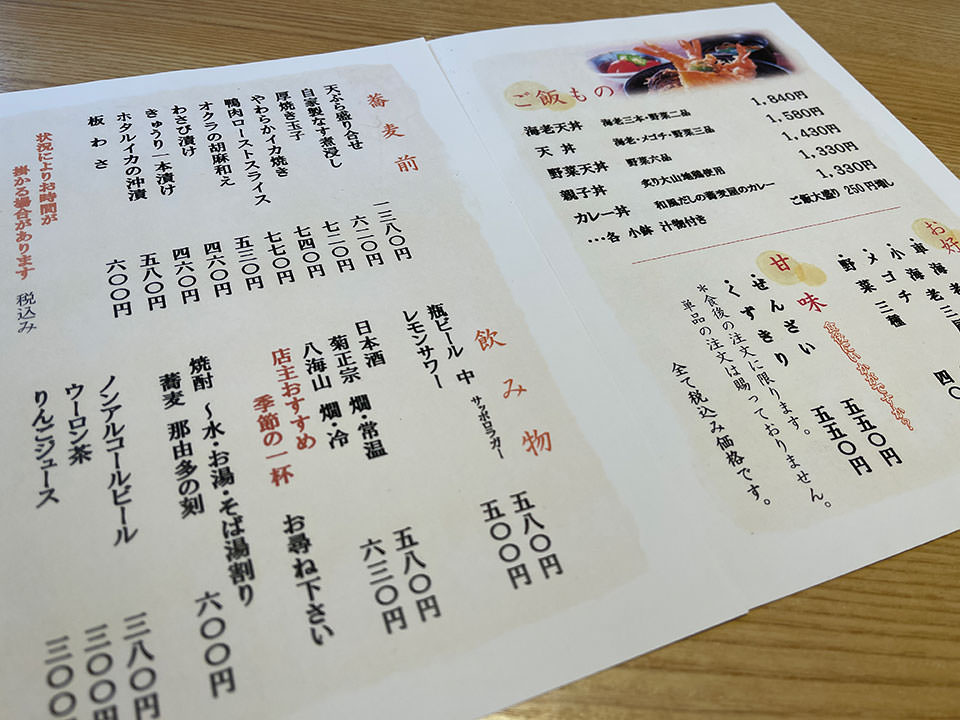 蕎麦前
天ぷら盛り合せ 一三八〇円
自家製なす煮浸し 六二〇円
厚焼き玉子 七二〇円
やわらかイカ焼き 七四〇円
鴨肉ローストスライス 七七〇円
オクラの胡麻和え 五三〇円
わさび漬け 四六〇円
きゅうり一本漬け 四六〇円
ホタルイカの沖漬 五八〇円
板わさ 六〇〇円
状況によりお時間が
掛かる場合があります
税込み
飲み物
瓶ビール 中 サッポロラガー 五八〇円
レモンサワー 五〇〇円
日本酒
菊正宗 燗・常温 五八〇円
八海山 燗・冷 六三〇円
店主おすすめ
季節の一杯 お尋ね下さい
焼酎 ～水・お湯・そば湯割り
蕎麦 那由多の刻 六〇〇円
ノンアルコールビール 三八〇円
ウーロン茶 三〇〇円
りんごジュース 三〇〇
ご飯もの
海老天丼 海老三本・野菜二品 1,840円
天丼 海老・メゴチ・野菜三品 1,580円
野菜天丼 野菜六品 1,430円
親子丼 炙り大山地鶏使用 1,330円
カレー丼 和風だしの蕎麦屋のカレー 1,330円
・・・各 小鉢 汁物付き ご飯大盛り 250円増し
お好
・車海老
・小海老三尾
・メゴチ
・野菜三種
甘味
食後にいかがですか？
・ぜんざい 五五〇円
・くずきり 五五〇円
＊食後の注文に限ります。
単品の注文は賜っておりません。
全て税込み価格です。